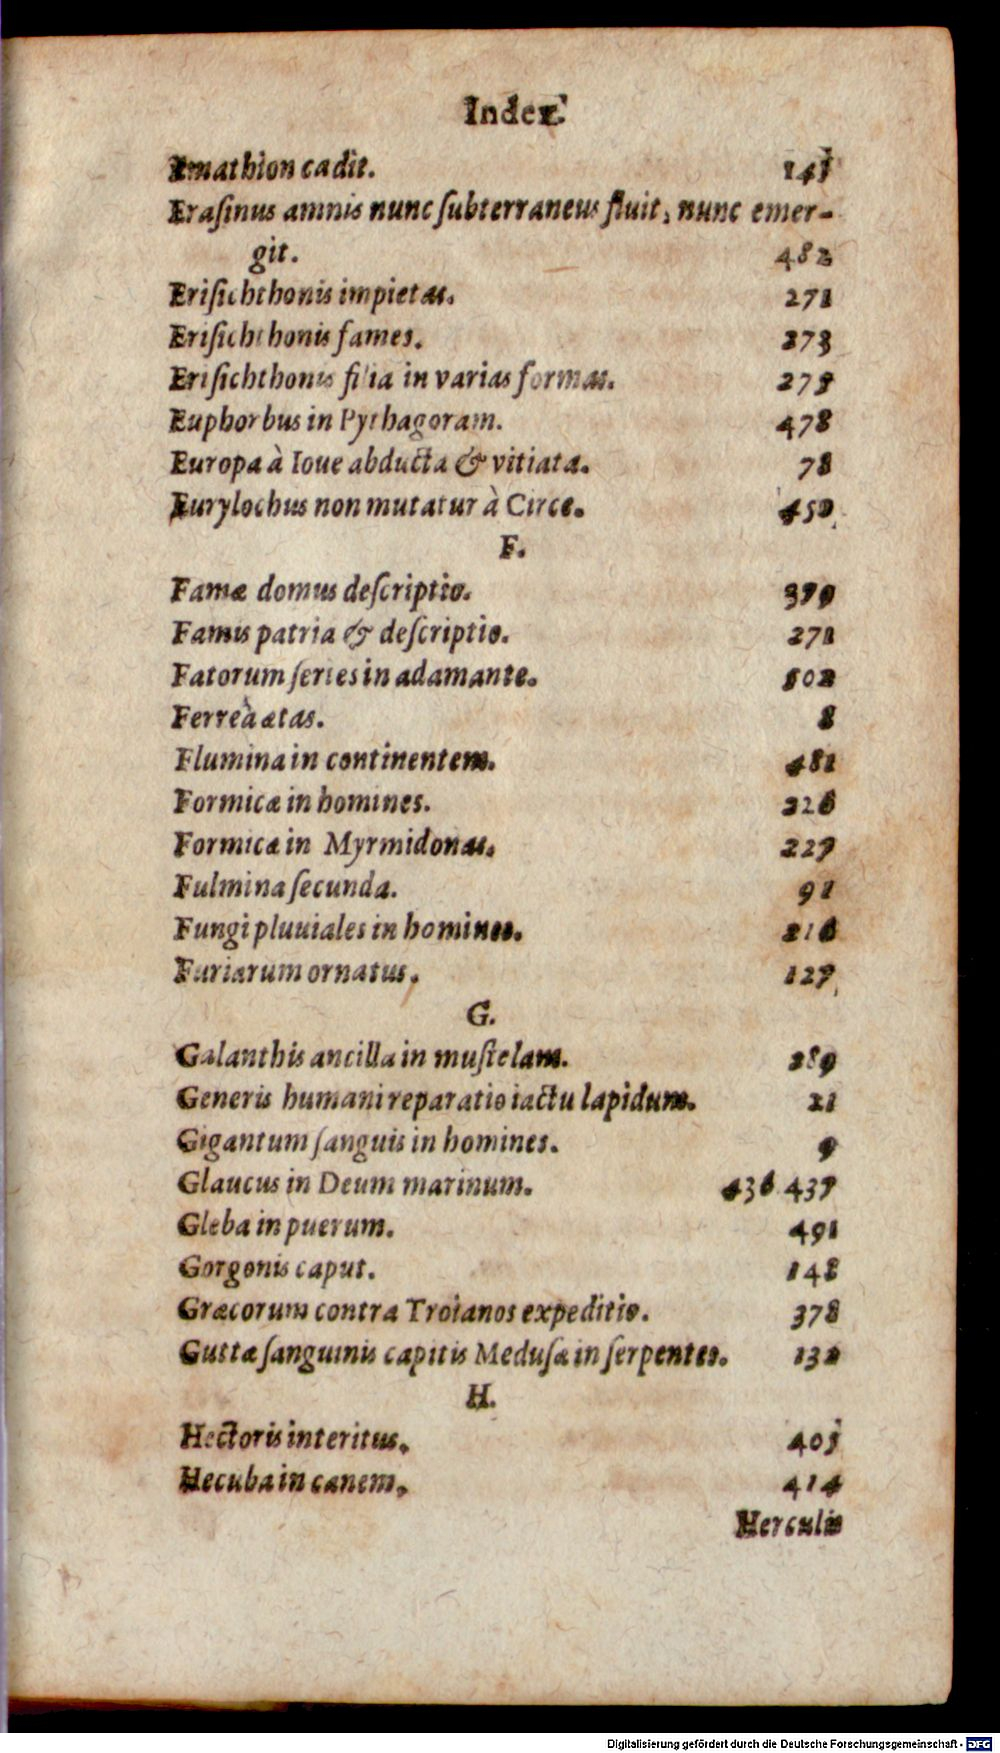 Index.
Emathion cadit. 145
Erasinus amnis nunc ſubterraneus fluit, nunc emer-
git. 482
Eriſichthonis impietas. 271
Eriſichthonis fames. 273
Eriſichthonis filia in varias formas. 275
Euphorbus in Pythagoram. 478
Europa à Ioue abducta & vitiata. 78
Eurylochus non mutatur à Circe. 450
F.
Famæ domus deſcriptio. 379
Famis patria & deſcriptio. 271
Fatorum ſeries in adamante. 502
Ferrea ætas. 8
Flumina in continentem. 481
Formicæ in homines. 226
Formicæ in Myrmidonas. 227
Fulmina ſecunda. 91
Fungi pluuiales in homines. 216
Furiarum ornatus. 127
G.
Galanthis ancilla in muſtelam. 289
Generis humani reparatio iactu lapidum. 21
Gigantum ſanguis in homines. 9
Glaucus in Deum marinum. 436 437
Gleba in puerum. 491
Gorgonis caput. 148
Græcorum contra Troianos expeditio. 378
Guttæ ſanguinis capitis Meduſæ in ſerpentes. 132
H.
Hectoris interitus. 405
Hecuba in canem. 414
Herculis
Digitalisierung gefördert durch die Deutsche Forschungsgemeinschaft - DFG